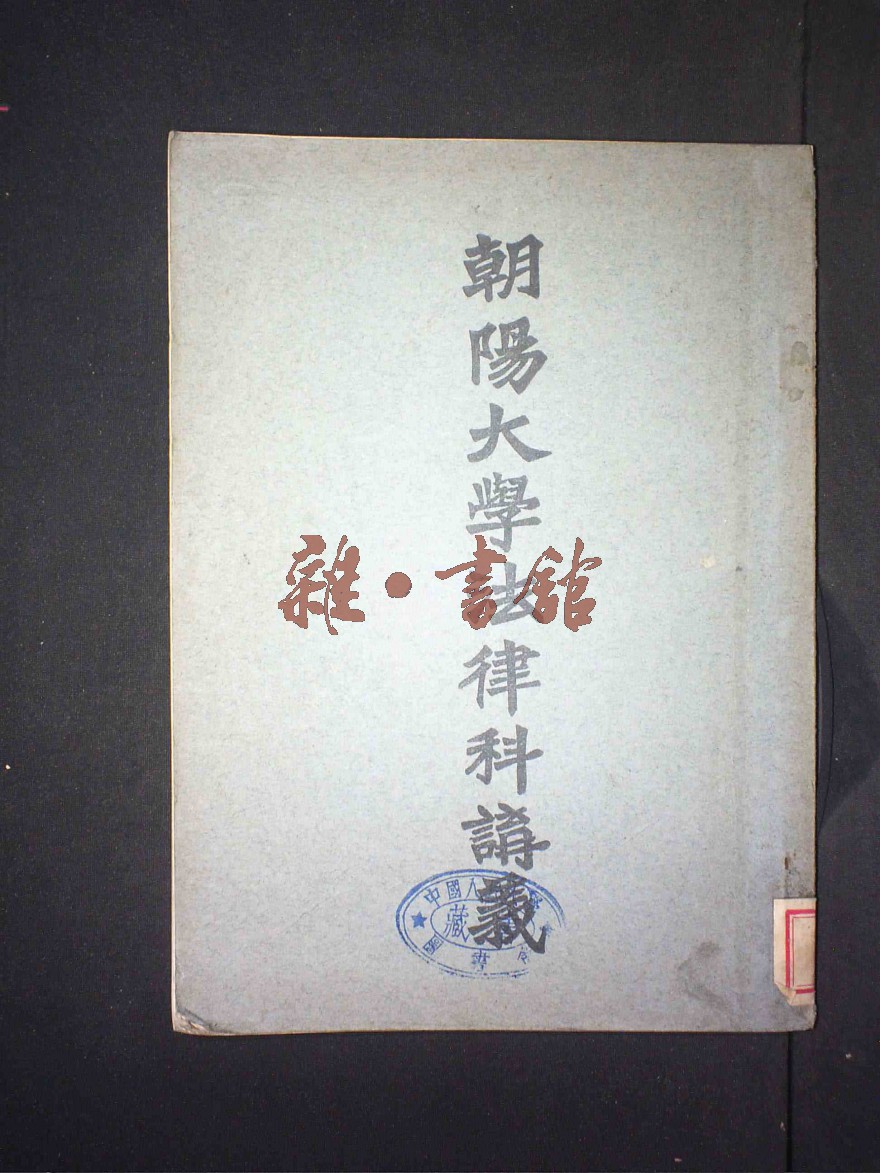 朝陽大學法律科講義
雜·書館
中國人
藏
書